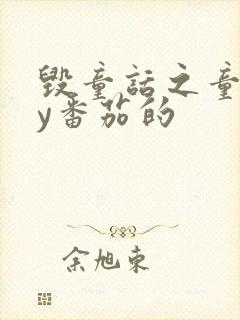 毁童话之童
y番茄的
余旭东